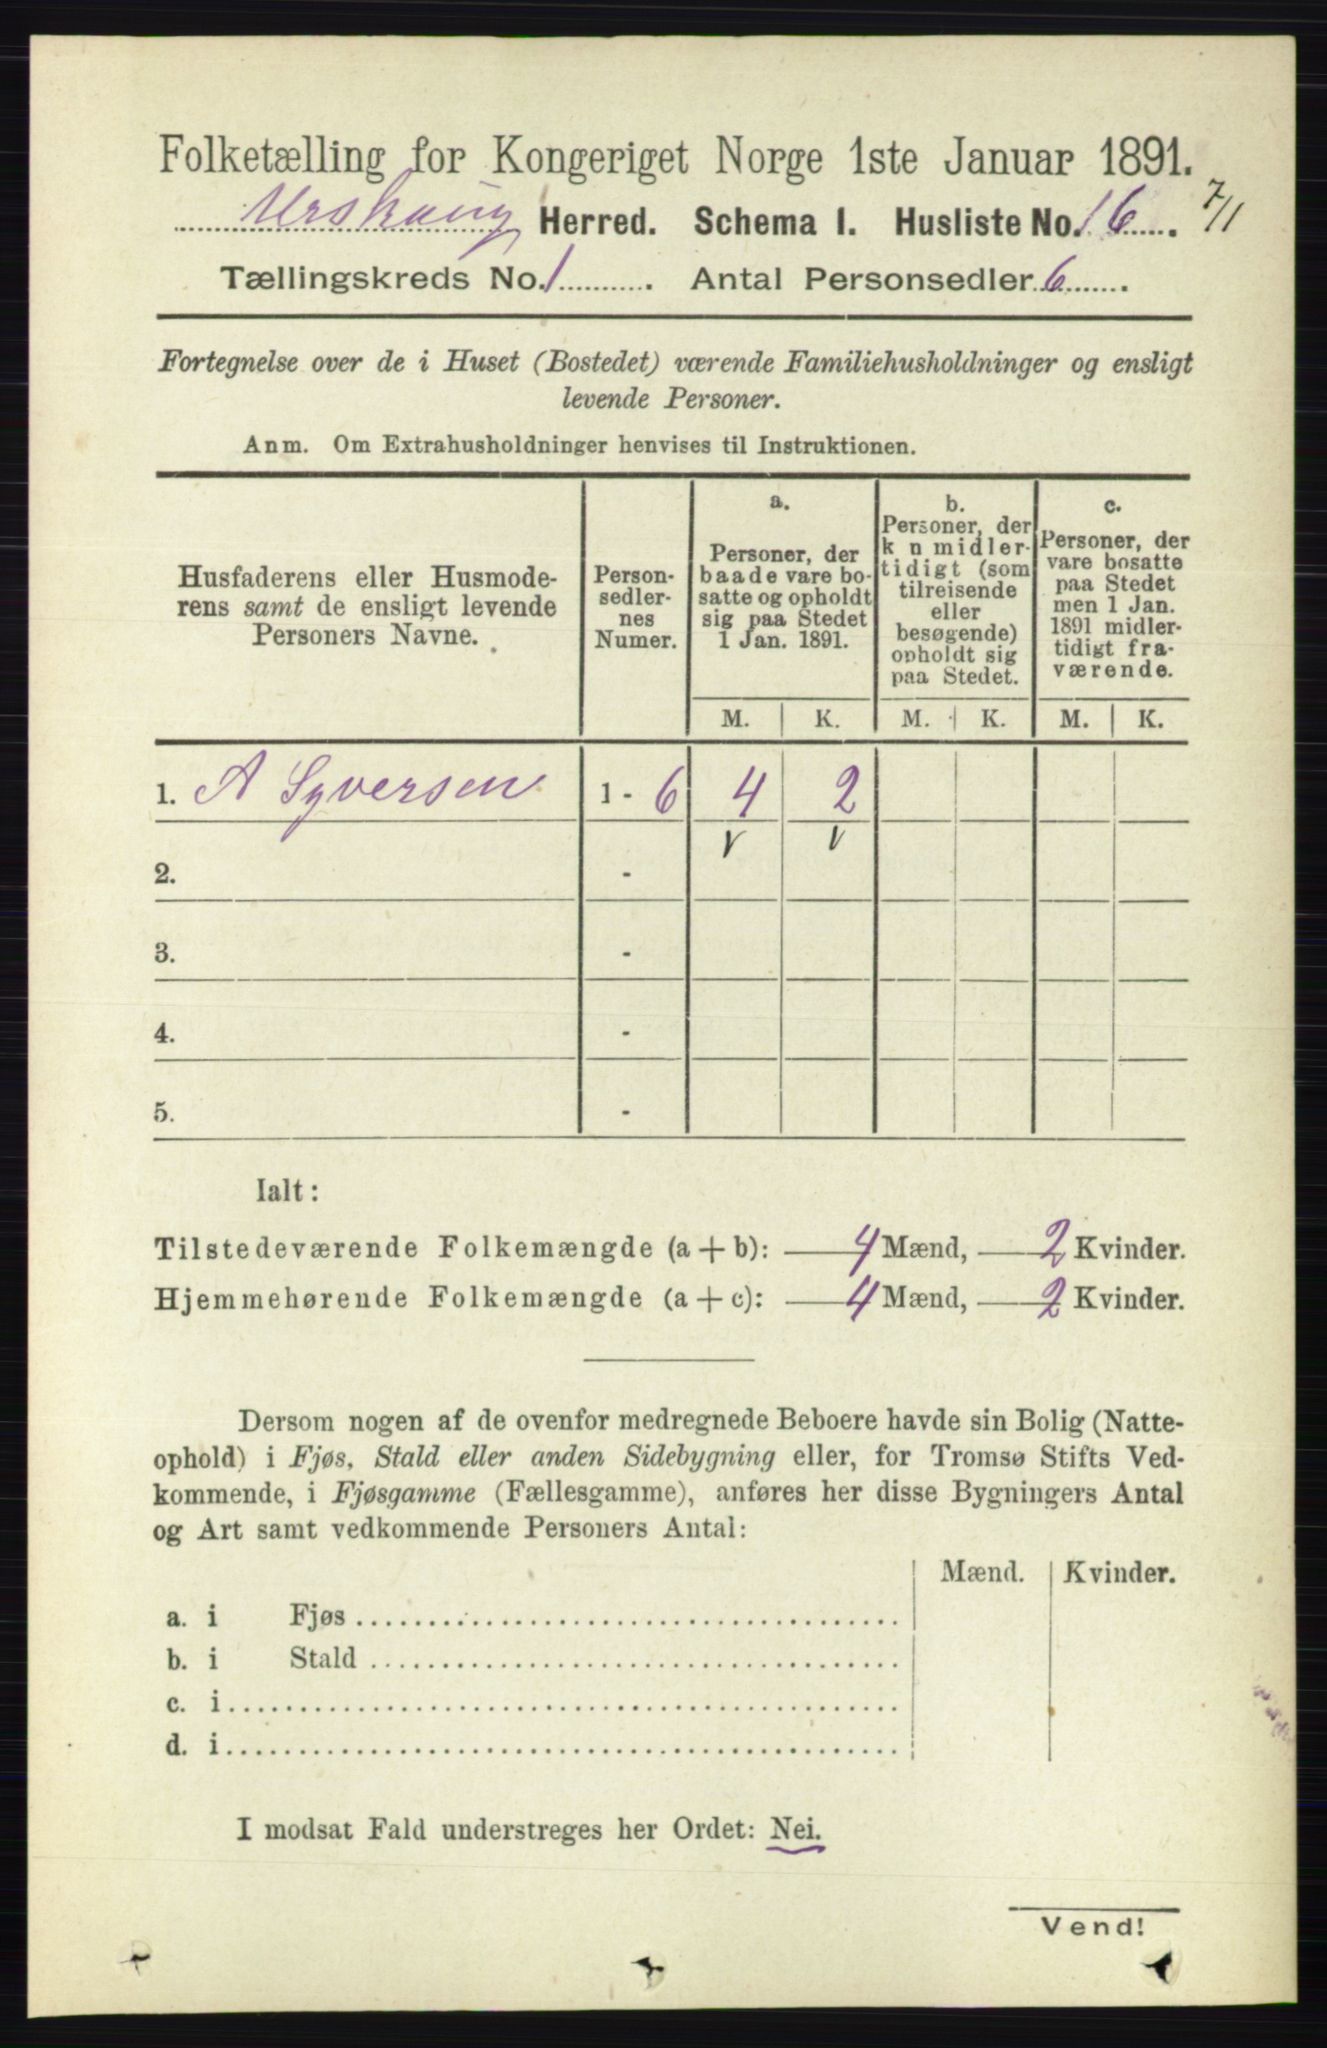 Folketælling for Kongeriget Norge 1ste Januar 1891.
Urskoug Herred. Schema I. Husliste No. 16. 7/11
Tællingskreds No. 1. Antal Personsedler 6.
Fortegnelse over de i Huset (Bostedet) værende Familiehusholdninger og ensligt
levende Personer.
Anm. Om Extrahusholdninger henvises til Instruktionen.
Husfaderens eller Husmode-
rens samt de ensligt levende
Personers Navne.
Person-
sedler-
nes
Numer.
a.
Personer, der
baade vare bo-
satte og opholdt
sig paa Stedet
1 Jan. 1891.
b.
Personer, der
k n midler-
tidigt (som
tilreisende
eller
besøgende)
opholdt sig
paa Stedet.
c.
Personer, der
vare bosatte
paa Stedet
men 1 Jan.
1891 midler-
tidigt fra-
værende.
M. K. M. K. M. K.
1. A Syversen 1 - 6 4 2
v v
2. -
3. -
4. -
5. -
Ialt:
Tilstedeværende Folkemængde (a + b): 4 Mænd, 2 Kvinder.
Hjemmehørende Folkemængde (a + c): 4 Mænd, 2 Kvinder.
Dersom nogen af de ovenfor medregnede Beboere havde sin Bolig (Natte-
ophold) i Fjøs, Stald eller anden Sidebygning eller, for Tromsø Stifts Ved-
kommende, i Fjøsgamme (Fællesgamme), anføres her disse Bygningers Antal
og Art samt vedkommende Personers Antal:
Mænd. Kvinder.
a. i Fjøs
b. i Stald
c. i
d. i
I modsat Fald understreges her Ordet: Nei.
Vend!